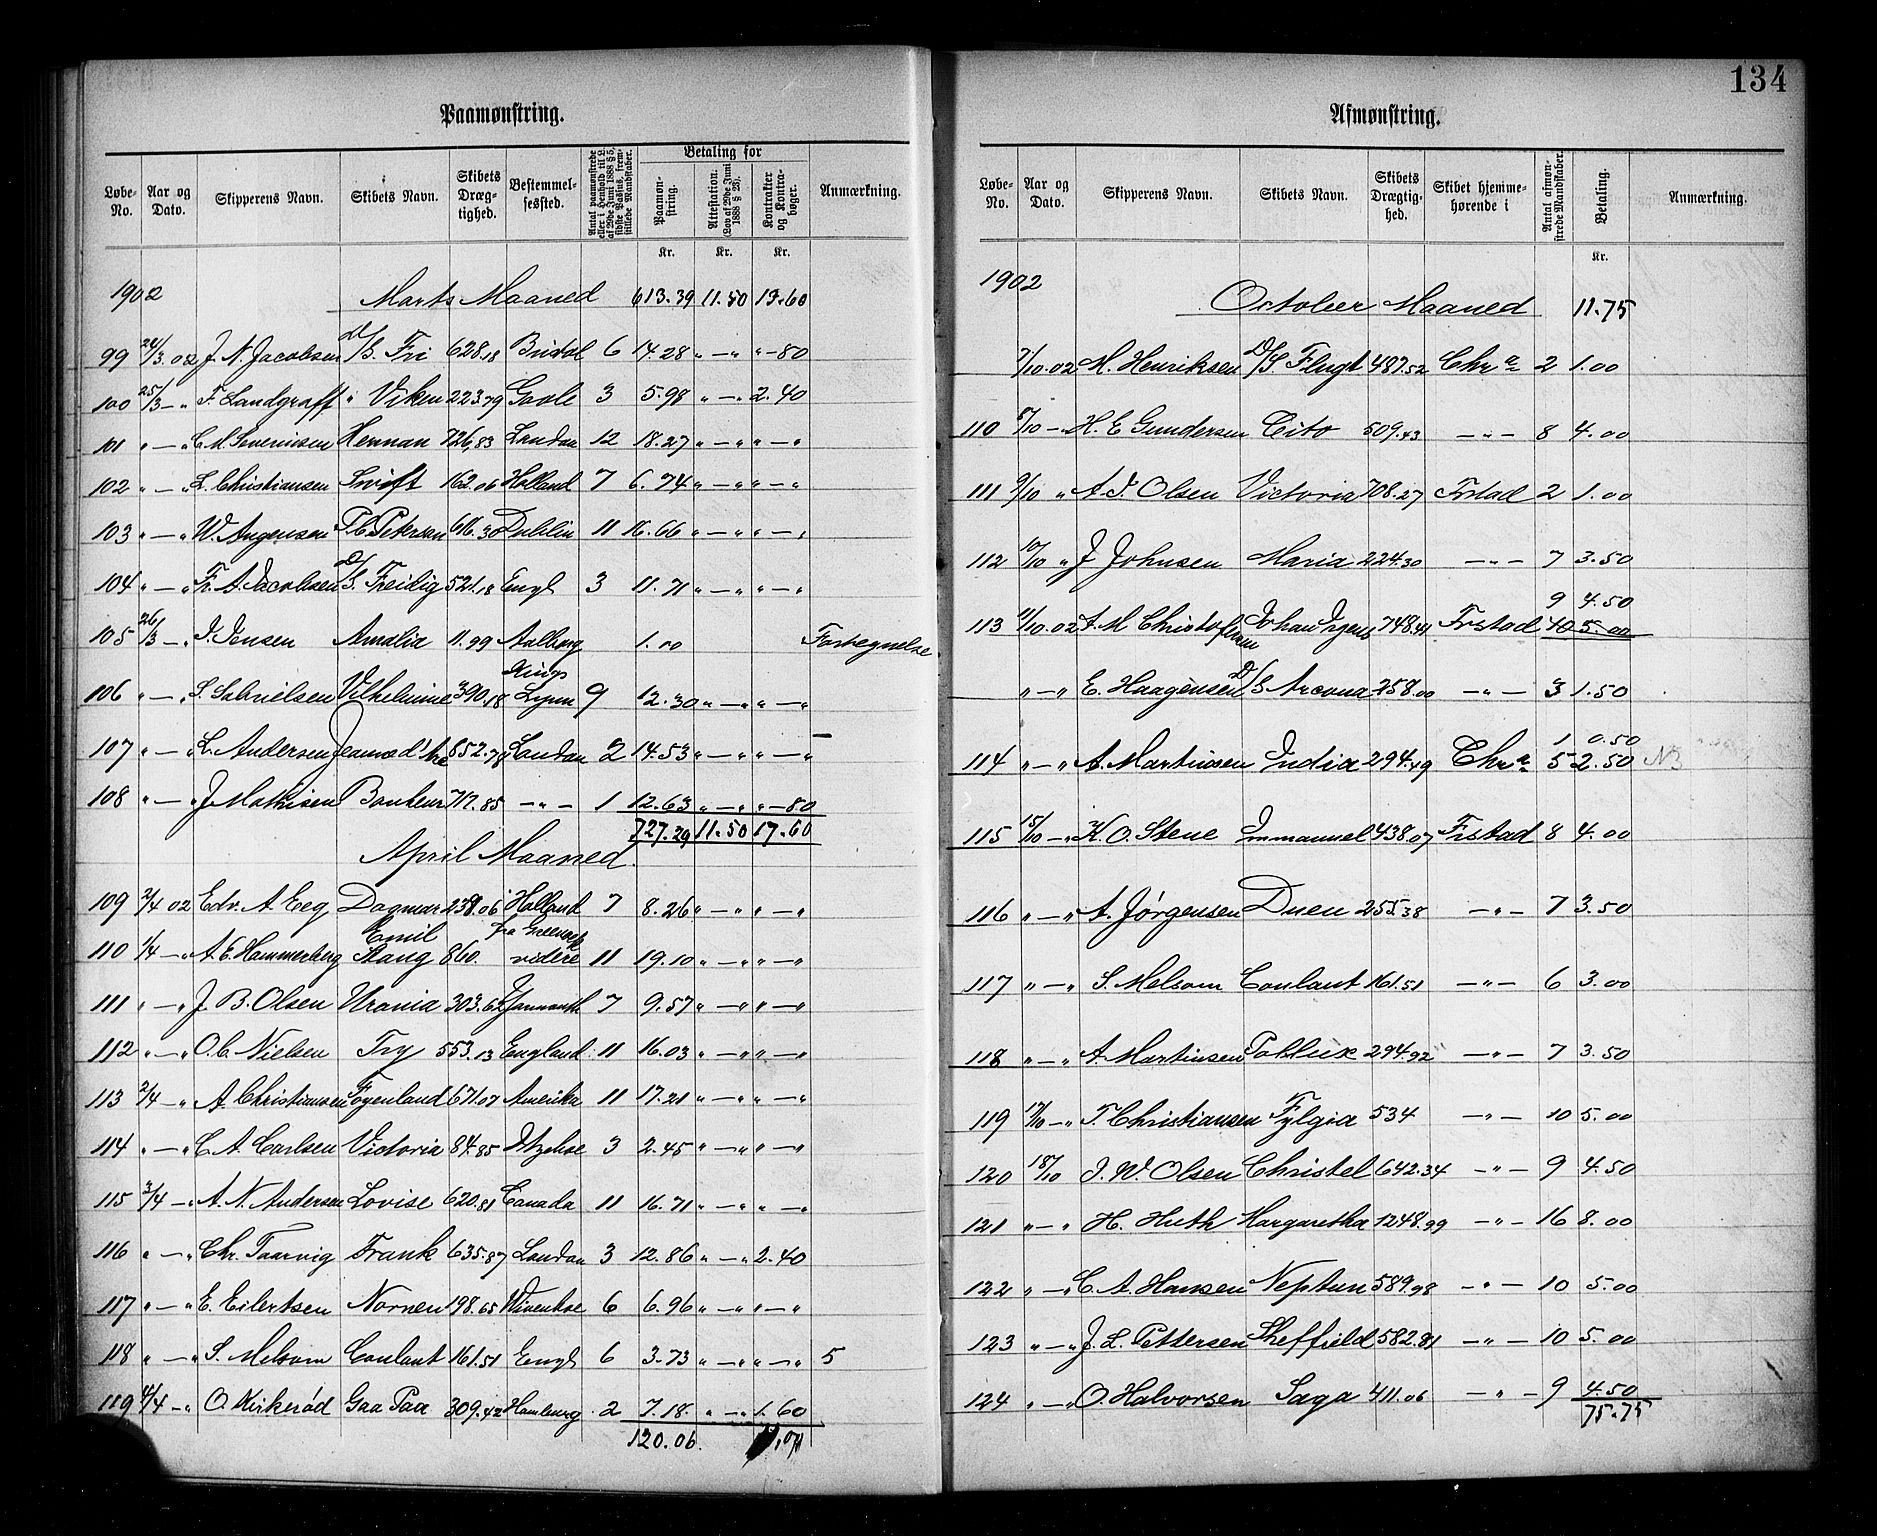 134
Paamønstring.
Løbe-No. Aar og Dato. Skipperens Navn. Skibets Navn. Skibets Dræg-tighed. Bestemmel-sessted. Antal paamønstrede eller i Henhold til L. af 29de Juni 1888 § 5, sidste Passus, frem-stillede Mandskaber. Betaling for Paamøn-string. Attestation. (Lov af 29de Juni 1888 § 23). Kontrakter og Kontra-bøger. Anmærkning.
Kr. Kr. Kr.
1902 Marts Maaned 613.39 11.50 13.60
99 24/3.02 J. N. Jacobsen D/S. Fri 628.18 Bristol 6 14.28 " — " " — 80
100 25/3 — " F. Landgraff " Viken 223.79 Goole 3 5.98 " — " 2.40
101 " — " C. M. Severinsen Herman 726,83 London 12 18.27 " — " " — "
102 " — " L. Christiansen Swift 162.06 Holland 7 6.74 " — " " — "
103 " — " W. Angensen Th. Petersen 616.30 Dublin 11 16.66 " — " " — "
104 " — " Fr. A. Jacobsen D/S. Freidig 521.18 Engl 3 11.71 " — " " — "
105 26/3 — " J. Jensen Amalia 11.99 Aalborg 1.00 Forhegnelse
106 " — " S. Gabrielsen Vilhelmine 390.18 Kings Lynn 9 12.30 " — " " — "
107 " — " L. Andersen Jeanne d'Arc 852.78 London 2 14.53 " — " " — "
108 " — " J. Mathisen Bonheur 717.85 — " — 1 12.63 " — " " — 80
727.29 11.50 17.60
April Maaned.
109 2/4 02 Edv. A. Eeg Dagmar 238.06 Holland 7 8.26 " — " " — "
110 1/4 — " A. E. Hammerberg Emil Stang 860. fra Greenock videre 11 19.10 " — " " — "
111 " — " J. B. Olsen Urania 303.62 Yarmouth 7 9.57 " — " " — "
112 " — " O. C. Nielsen Try 553.13 England 11 16.03 " — " " — "
113 2/4 — " A. Christiansen Fogenland 671.07 Amerika 11 17.21 " — " " — "
114 " — " C. A. Carlsen Victoria 84.85 Itzehoe 3 2.45 " — " " — "
115 3/4 — " A. N. Andersen Lovise 620.81 Canada 11 16.71 " — " " — "
116 " — " Chr. Taarvig Frank 635.87 London 3 12.86 " — " 2.40
117 " — " E. Eilertsen Nornen 198.65 Wivenhoe 6 6.96 " — " " — "
118 " — " S. Melsom Conlant 161.51 Engl 6 3.73 " — " " — " 5
119 4/4 — " O. Kirkerød Gaa Paa 309.42 Hamburg 2 7.18. " — " 1.60
120.06.
Afmønstring.
Løbe-No. Aar og Dato. Skipperens Navn. Skibets Navn. Skibets Drægtig-hed. Skibet hjemme-hørende i Antal afmøn-strede Mandskaber. Betaling. Anmærkning.
Kr.
1902 October Maaned 11.75
7/10.02 M. Henriksen D/S Flugt 487.52 Chr a 2 1.00
110 8/10 — " H. E. Gundersen Cito 509.43 — " — 8 4.00
111 9/10 " A. J. Olsen Victoria 708.27 Frstad 2 1.00
112 10/10 " J Johnsen Maria 224.30 — " — 7 3.50
9 4.50
113 11/10.02 A. M. Christoffersen Johan Irgens 748.41 Frstad 10 5.00
" — " E. Haagensen D/S Arcona 258.00 — " — 3 1.50
1 0.50
114 " — " A. Martinsen India 294.49 Chr a 5 2.50 NB
115 15/10 — " K. O. Stene Immanuel 438.07 Frstad 8 4.00
116 " — " A. Jørgensen Duen 255.38 — " — 7 3.50
117 " — " S. Melsom Conlant 161.51 — " — 6 3.00
118 " — " A. Martinsen Pollux 294.92 — " — 7 3.50
119 17/10 — " T. Christiansen Fylgia 534 — " — 10 5.00
120 18/10 J. W. Olsen Christel 642.34 — " — 9 4.50
121 " — " H. Huth Margaretha 1248.99 — " — 16 8.00
122 " — " C. A. Hansen Neptun 589.98 — " — 10 5.00
123 " — " J. L. Pettersen Sheffield 582.81 — " — 10 5.00
124 " — " O. Halvorsen Saga 411.06 — " — 9 4.50
75.75